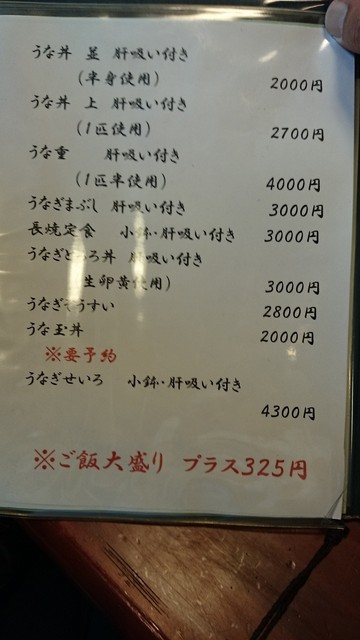 うな丼 並 肝吸い付き
(半身使用) 2000円
うな丼 上 肝吸い付き
(1匹使用) 2700円
うな重 肝吸い付き
(1匹半使用) 4000円
うなぎまぶし 肝吸い付き 3000円
長焼定食 小鉢・肝吸い付き 3000円
うなぎとろろ丼 肝吸い付き
(生卵黄使用) 3000円
うなぎぞうすい 2800円
うな玉丼 2000円
※要予約
うなぎせいろ 小鉢・肝吸い付き
4300円
※ご飯大盛り プラス325円